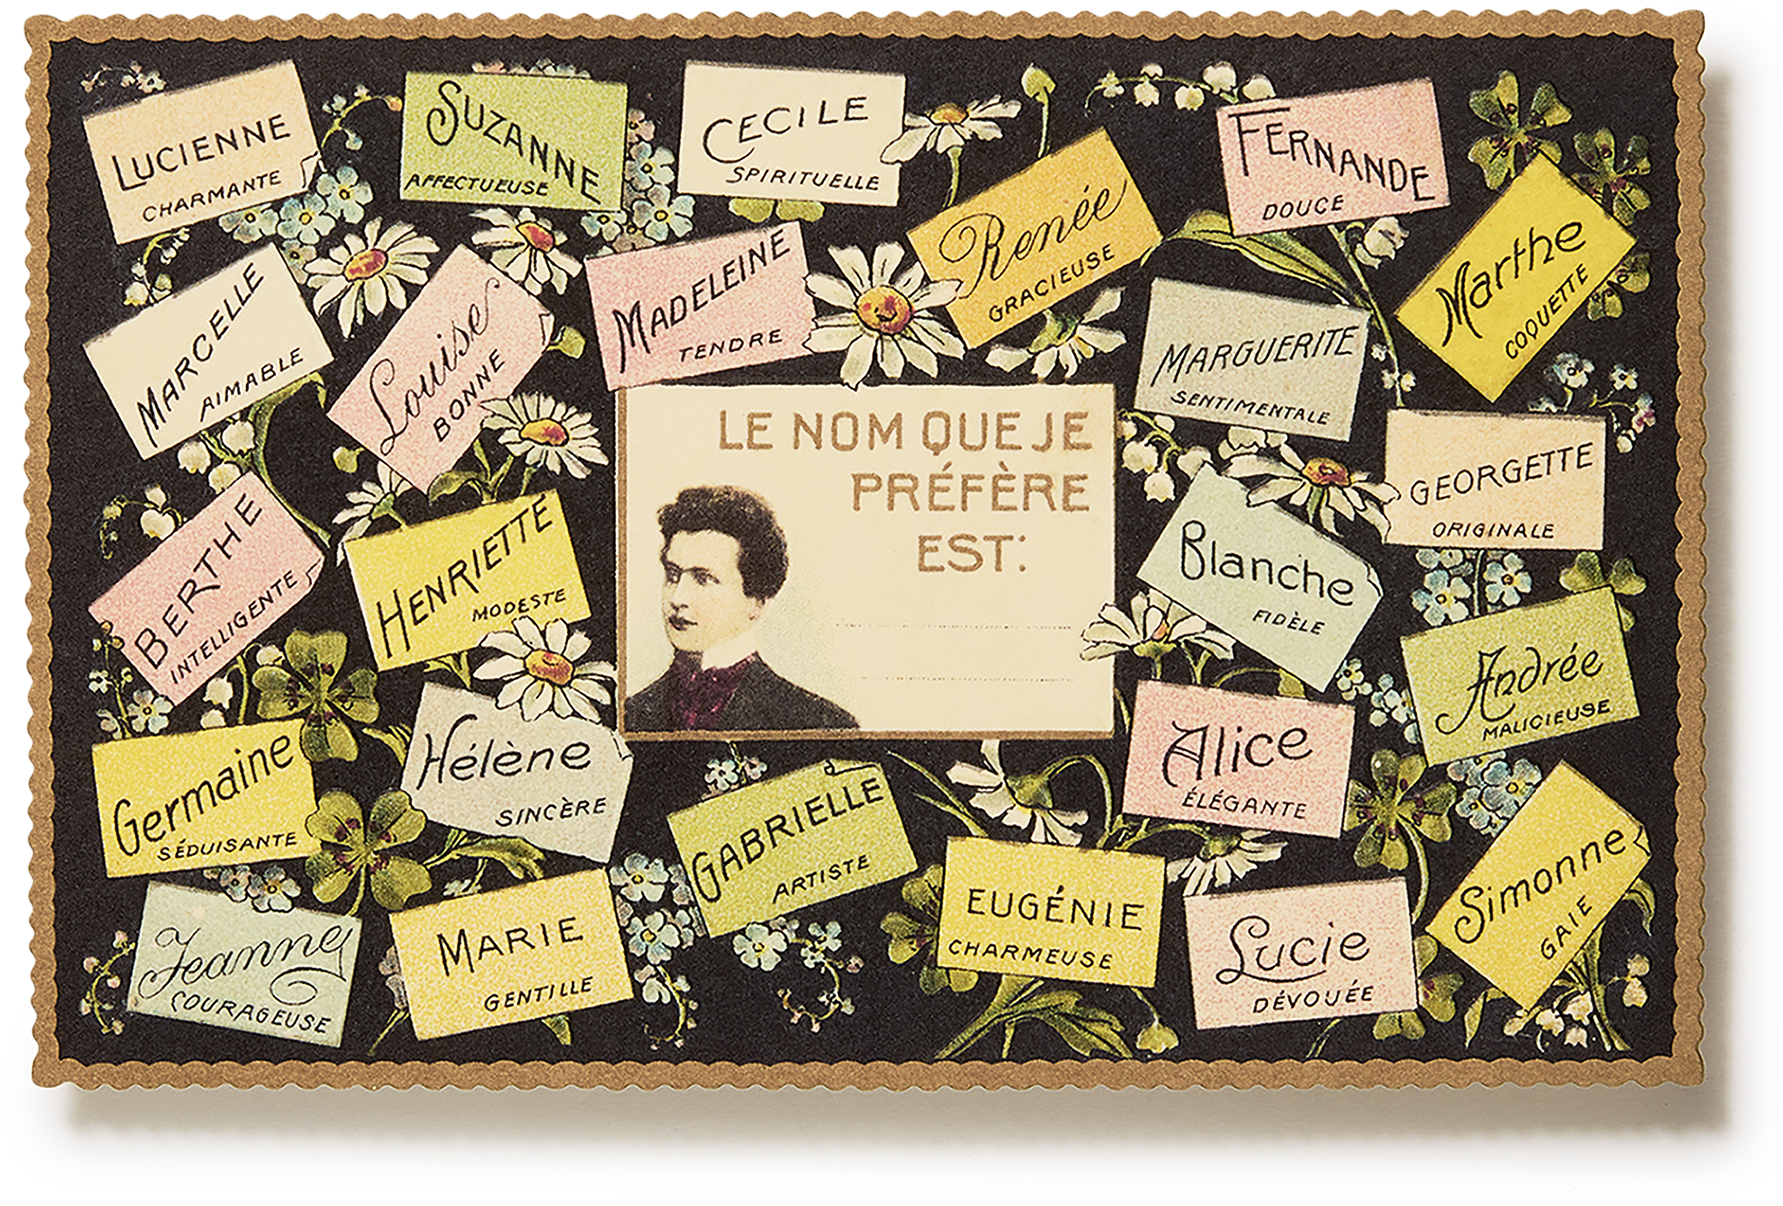 LUCIENNE
CHARMANTE
SUZANNE
AFFECTUEUSE
CECILE
SPIRITUELLE
Renée
GRACIEUSE
FERNANDE
DOUCE
Marthe
COQUETTE
MARCELLE
AIMABLE
Louise
BONNE
MADELEINE
TENDRE
MARGUERITE
SENTIMENTALE
GEORGETTE
ORIGINALE
LE NOM QUE JE
PRÉFÈRE
EST:
BERTHE
INTELLIGENTE
HENRIETTE
MODESTE
Blanche
FIDÈLE
Andrée
MALICIEUSE
Germaine
SÉDUISANTE
Hélène
SINCÈRE
GABRIELLE
ARTISTE
Alice
ÉLÉGANTE
Simonne
GAIE
Jeanne
COURAGEUSE
MARIE
GENTILLE
EUGÉNIE
CHARMEUSE
Lucie
DÉVOUÉE